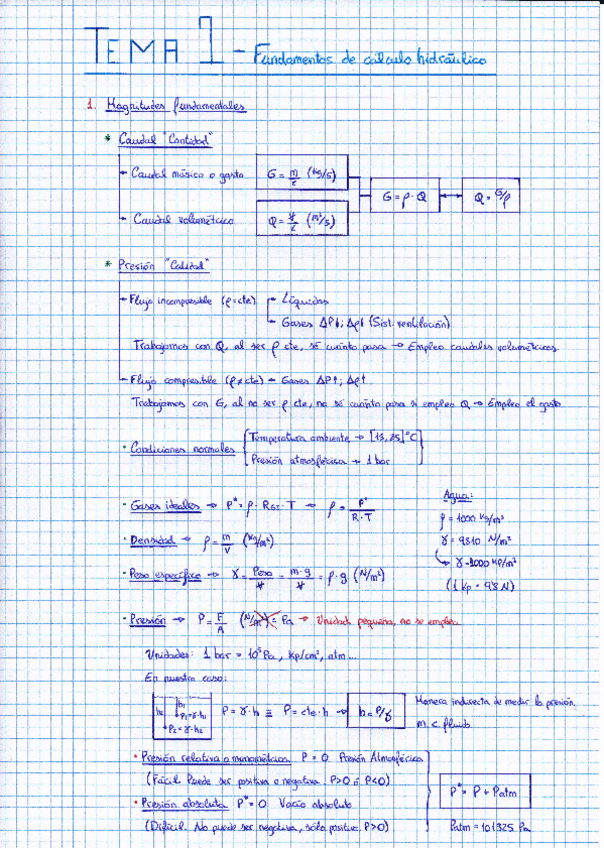 TEMA 1 - Fundamentos de cálculo hidráulico
1. Magnitudes fundamentales
* Caudal "Cantidad"
- Caudal másico o gasto G = m/t (kg/s)
G = ρ · Q ↔ Q = G/ρ
- Caudal volumétrico Q = V/t (m³/s)
* Presión "Calidad"
- Flujo incompresible (ρ = cte) - Líquidos
- Gases ΔP↓; Δρ↓ (Sist. ventilación)
Trabajamos con Q, al ser ρ cte, sé cuánto pasa → Empleo caudales volumétricos
- Flujo compresible (ρ ≠ cte) - Gases ΔP↑; Δρ↑
Trabajamos con G, al no ser ρ cte, no sé cuánto pasa si empleo Q → Empleo el gasto
· Condiciones normales Temperatura ambiente → [15, 25] °C
Presión atmosférica → 1 bar
Agua:
· Gases ideales → P* = ρ · RGI · T → ρ = P*/R·T
ρ = 1000 kg/m³
· Densidad → ρ = m/V (kg/m³)
γ = 9810 N/m³
γ = 1000 kp/m³
· Peso específico → γ = Peso/V = m·g/V = ρ · g (N/m³)
(1 kp = 9'8 N)
· Presión → P = F/A (N/m²) = Pa → Unidad pequeña, no se emplea
Unidades: 1 bar = 10⁵ Pa, kp/cm², atm...
En nuestro caso:
h₂ h₁ P₁ = γ·h₁
P₂ = γ·h₂
P = γ · h ≡ P = cte · h → h = P/γ
Manera indirecta de medir la presión.
m.c. fluido
· Presión relativa o manométrica P = 0 Presión Atmosférica
(Fácil. Puede ser positiva o negativa P>0 ó P<0)
P* = P + Patm
· Presión absoluta P* = 0 Vacío absoluto
(Difícil. No puede ser negativa, sólo positiva P>0)
Patm = 101325 Pa